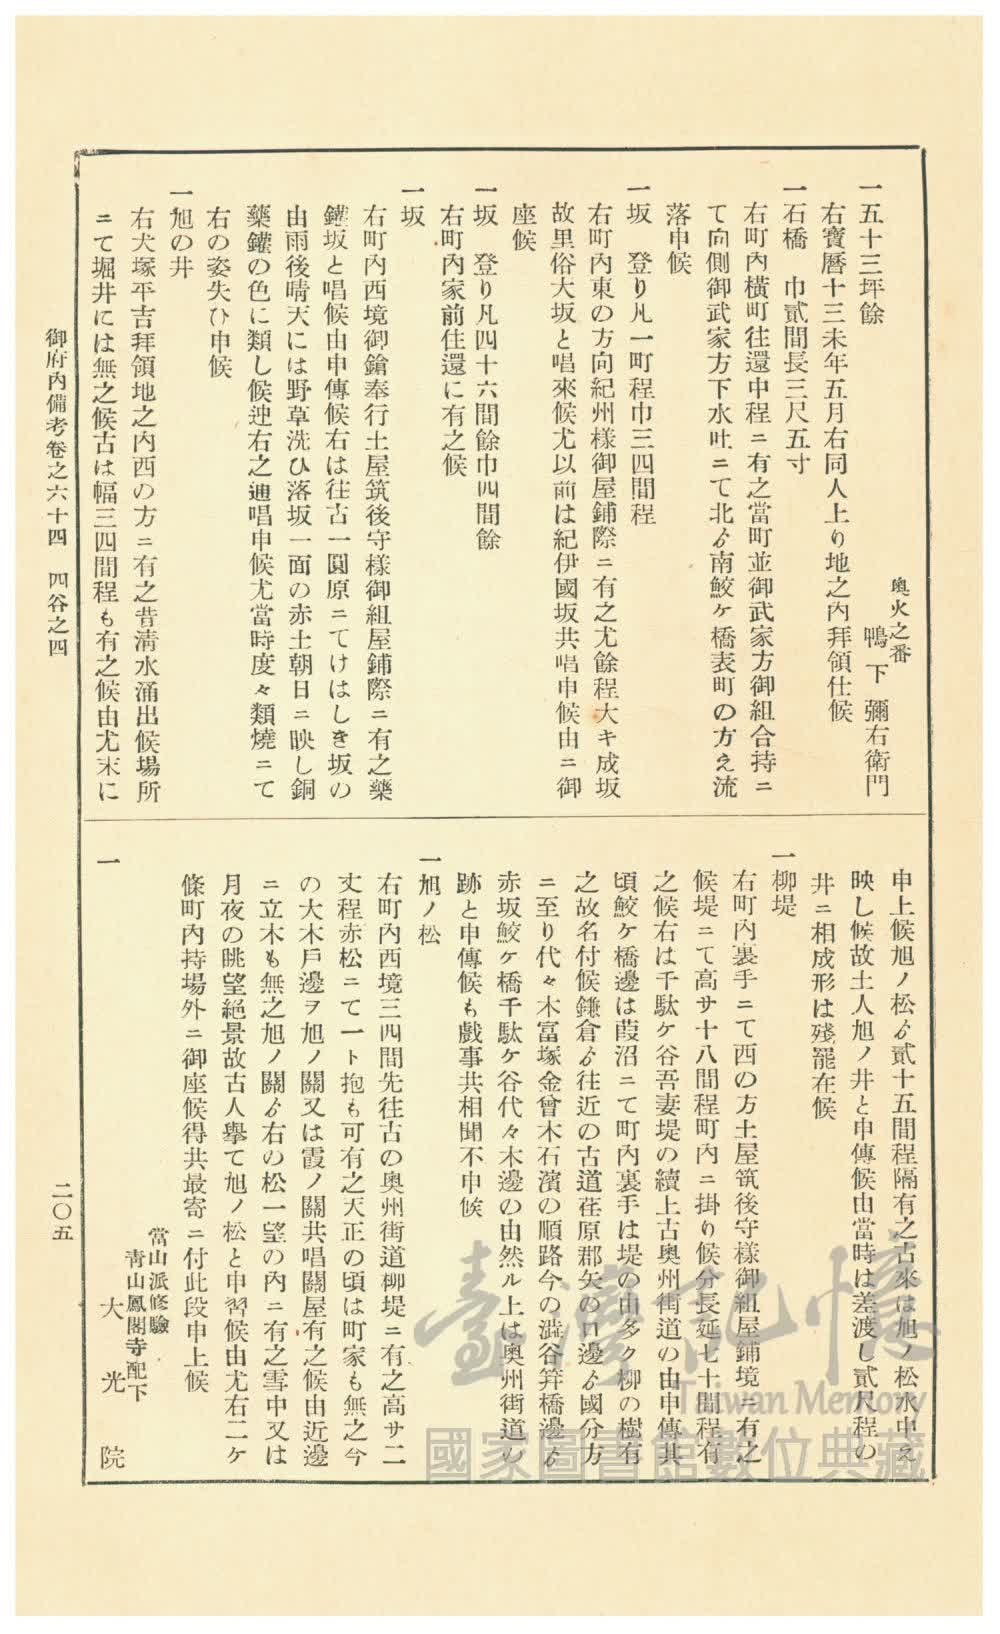 奧火之番
一五十三坪餘　　鴨下彌右衛門
右寶曆十三未年五月右同人上り地之內拜領仕候
一石橋　巾貳間長三尺五寸
右町內橫町往還中程ニ有之當町並御武家方御組合持ニ
て向側御武家方下水吐ニて北ゟ南鮫ケ橋表町の方え流
落申候
一坂　登り凡一町程巾三四間程
右町內東の方向紀州樣御屋鋪際ニ有之尤餘程大キ成坂
故里俗大坂と唱來候尤以前は紀伊國坂共唱申候由ニ御
座候
一坂　登り凡四十六間餘巾四間餘
右町內家前住還に有之候
一坂
右町內西境御鎗奉行土屋筑後守樣御組屋鋪際ニ有之藥
鑵坂と唱候由申傳候右は往古一圓原ニてけはしき坂の
由雨後晴天には野草洗ひ落坂一面の赤土朝日ニ映し銅
藥鑵の色に類し候迚右之通唱申候尤當時度々類燒ニて
右の姿失ひ申候
一旭の井
右犬塚平吉拜領地之內西の方ニ有之昔淸水涌出候場所
ニて堀井には無之候古は幅三四間程も有之候由尤末に
申上候旭ノ松ゟ貳十五間程隔有之古來は旭ノ松水中え
映し候故土人旭ノ井と申傳候由當時は差渡し貳尺程の
井ニ相成形は殘罷在候
一柳堤
右町內裏手ニて西の方土屋筑後守樣御組屋鋪境ニ有之
候堤ニて高サ十八間程町內ニ掛り候分長延七十間程有
之候右は千駄ケ谷吾妻堤の續上古奧州街道の由申傳其
頃鮫ケ橋邊は葭沼ニて町內裏手は堤の由多ク柳の樹有
之故名付候鎌倉ゟ往近の古道荏原郡矢の口邊ゟ國分方
ニ至り代々木富塚金曾木石濱の順路今の澁谷筓橋邊ゟ
赤坂鮫ケ橋千駄ケ谷代々木邊の由然ル上は奧州街道の
跡と申傳候も戲事共相聞不申候
一旭ノ松
右町內西境三四間先往古の奧州街道柳堤ニ有之高サ二
丈程赤松ニて一ト抱も可有之天正の頃は町家も無之今
の大木戶邊ヲ旭ノ關又は霞ノ關共唱關屋有之候由近邊
ニ立木も無之旭ノ關ゟ右の松一望の內ニ有之雪中又は
月夜の眺望絕景故古人擧て旭ノ松と申習候由尤右二ケ
條町內持場外ニ御座候得共最寄ニ付此段申上候
當山派修驗
靑山鳳閣寺配下
一　　大光院
御府內備考卷之六十四　四谷之四
二〇五
臺灣記憶
Taiwan Memory
國家圖書館數位典藏